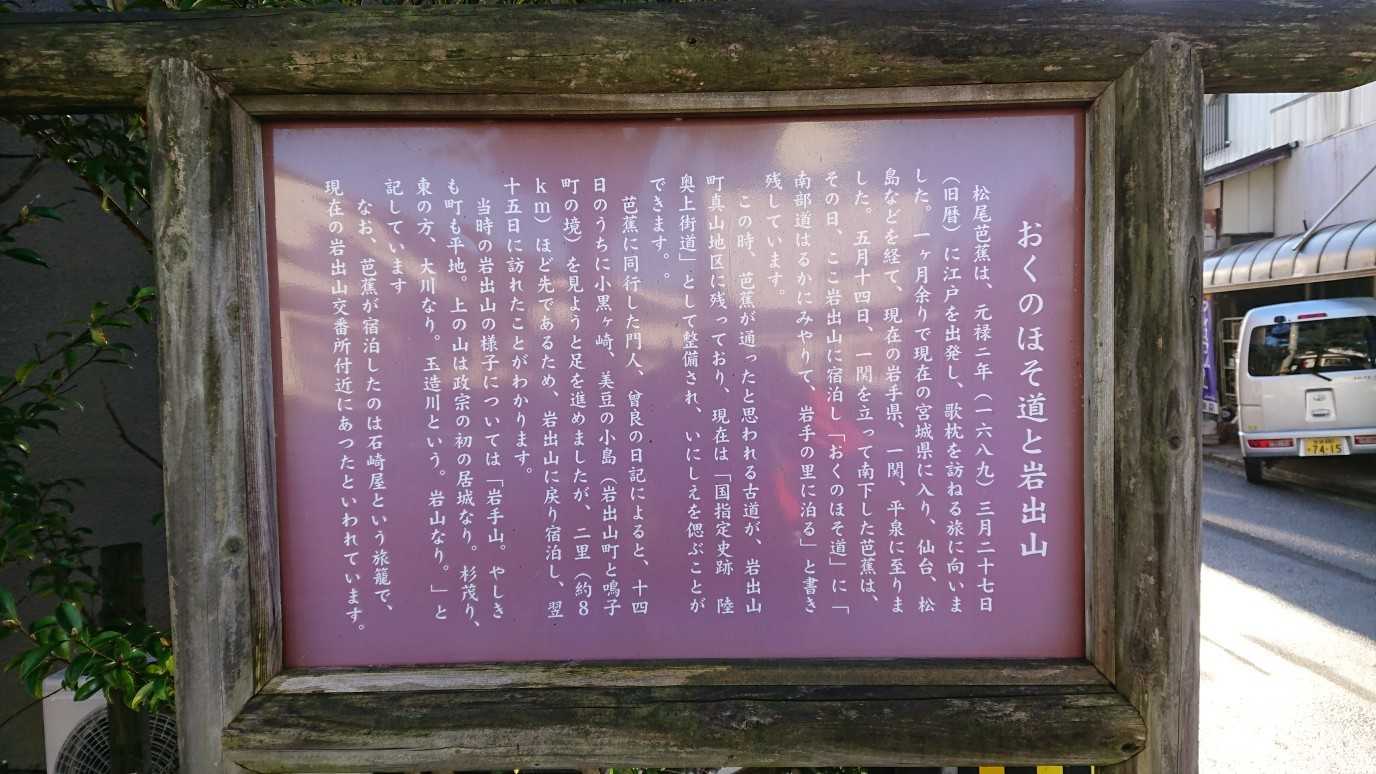 おくのほそ道と岩出山
松尾芭蕉は、元禄二年（一六八九）三月二十七日
（旧暦）に江戸を出発し、歌枕を訪ねる旅に向いま
した。一ヶ月余りで現在の宮城県に入り、仙台、松
島などを経て、現在の岩手県、一関、平泉に至りま
した。五月十四日、一関を立って南下した芭蕉は、
その日、ここ岩出山に宿泊し「おくのほそ道」に「
南部道はるかにみやりて、岩手の里に泊る」と書き
残しています。
この時、芭蕉が通ったと思われる古道が、岩出山
町真山地区に残っており、現在は「国指定史跡　陸
奥上街道」として整備され、いにしえを偲ぶことが
できます。。
芭蕉に同行した門人、曾良の日記によると、十四
日のうちに小黒ヶ崎、美豆の小島（岩出山町と鳴子
町の境）を見ようと足を進めましたが、二里（約８
ｋｍ）ほど先であるため、岩出山に戻り宿泊し、翌
十五日に訪れたことがわかります。
当時の岩出山の様子については「岩手山。やしき
も町も平地。上の山は政宗の初の居城なり。杉茂り、
東の方、大川なり。玉造川という。岩山なり。」と
記しています
なお、芭蕉が宿泊したのは石崎屋という旅籠で、
現在の岩出山交番所付近にあったといわれています。
74-15